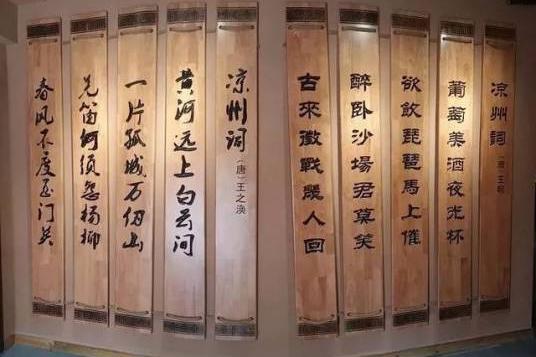 凉州詞(唐)王翰
葡萄美酒夜光杯
欲飲琵琶馬上催
醉卧沙場君莫笑
古來徵戰幾人回
凉州词(唐)王之涣
黄河远上白云间
一片孤城万仞山
羌笛何须怨楊柳
春风不度玉门关